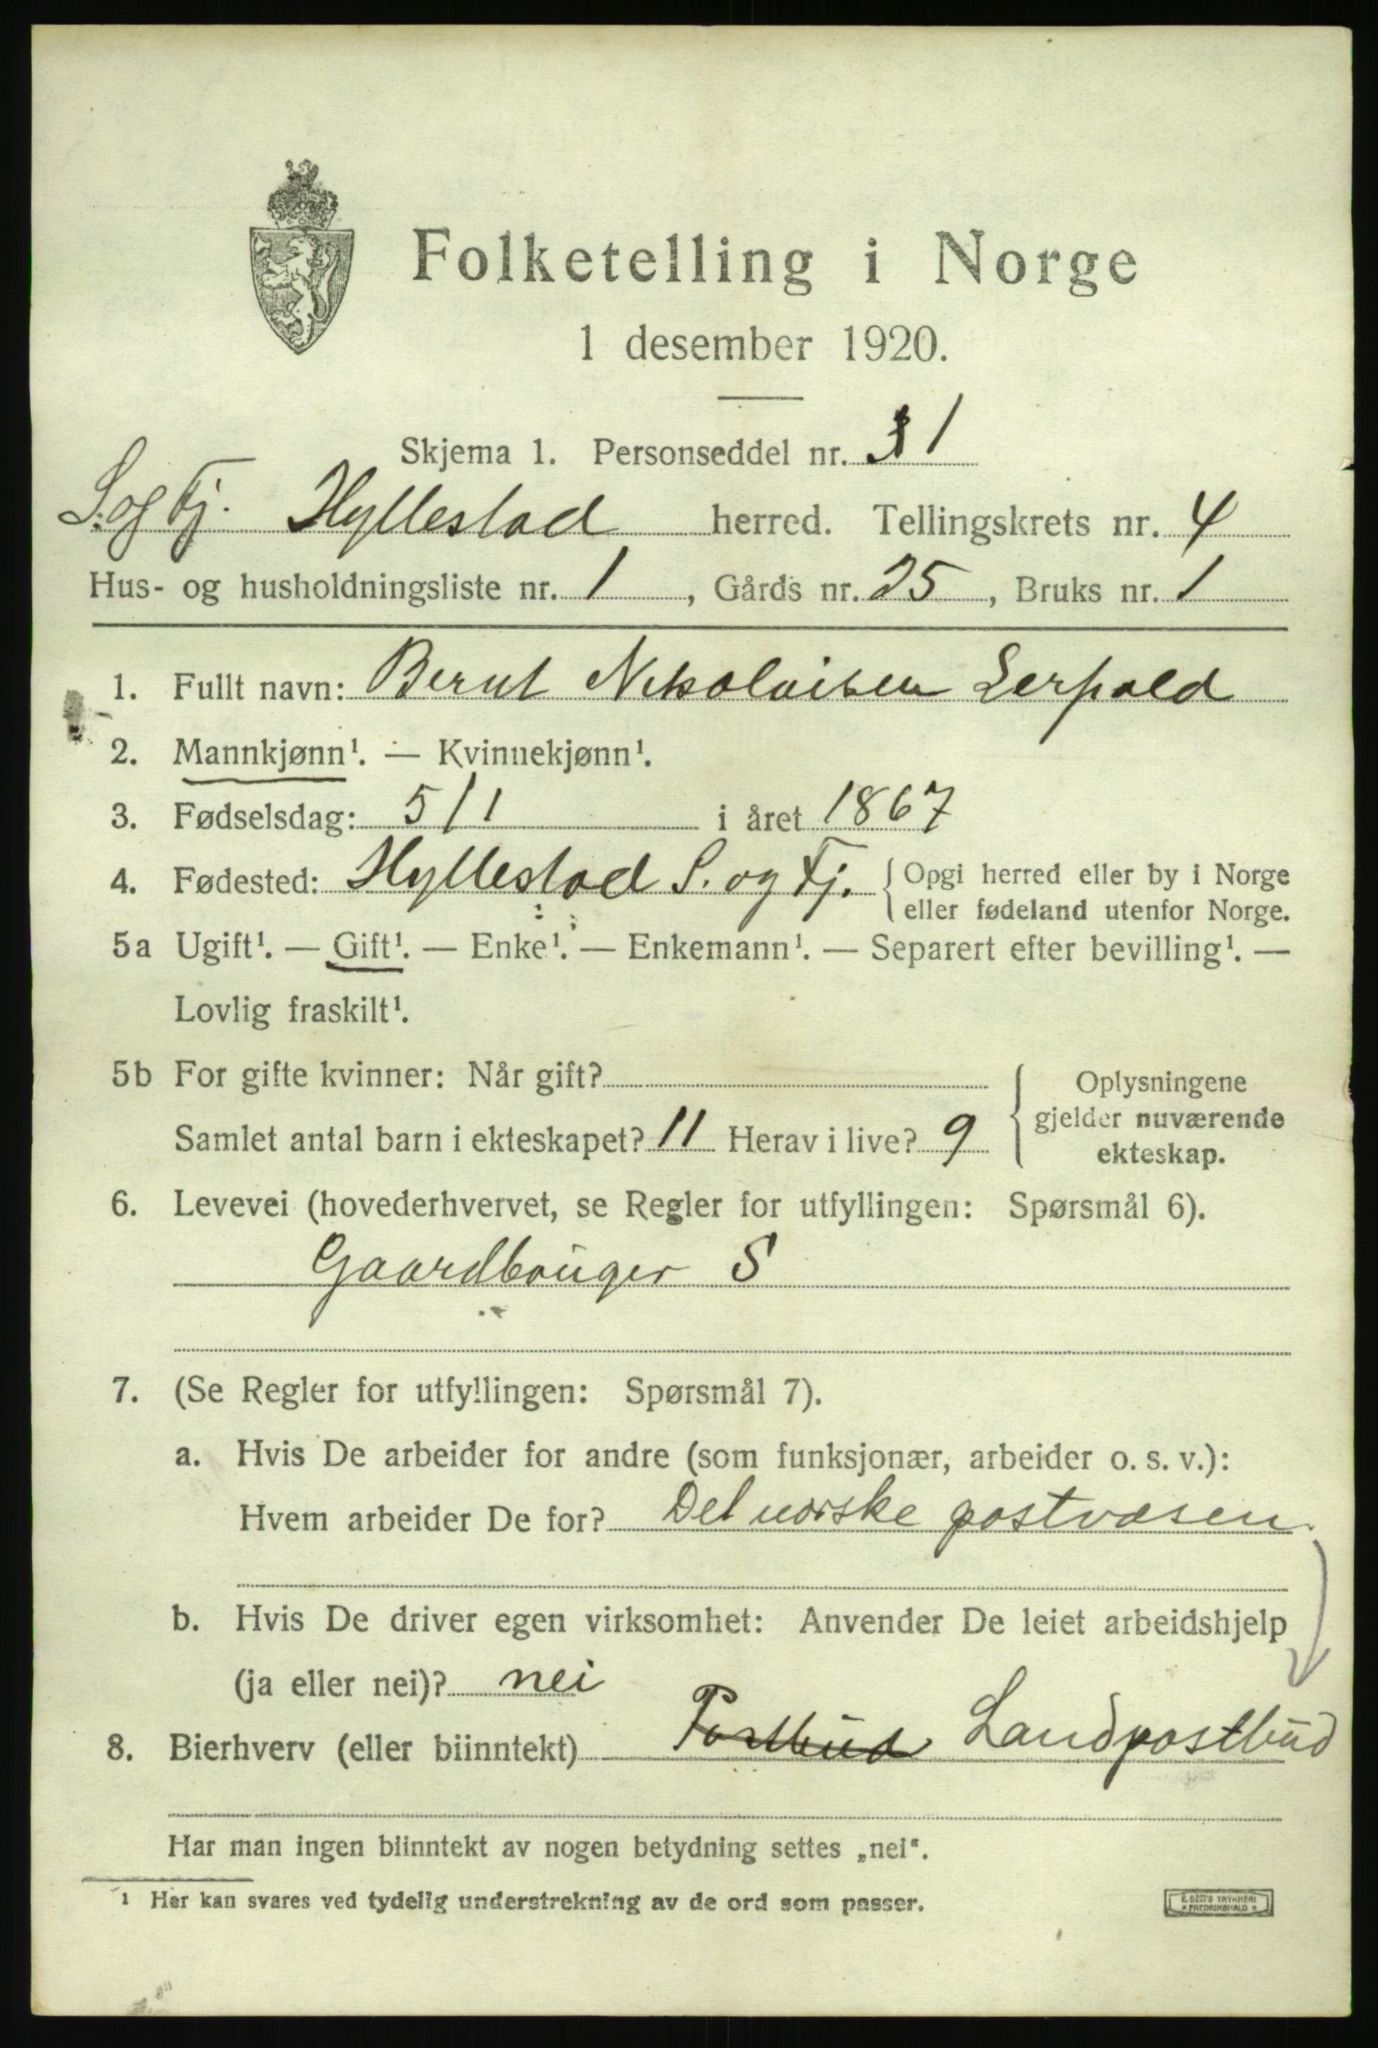 Folketelling i Norge
1 desember 1920.
Skjema 1. Personseddel nr. 1
S. og Fj. Hyllestad herred. Tellingskrets nr. 4
Hus- og husholdningsliste nr. 1, Gårds nr. 25, Bruks nr. 1
1. Fullt navn: Bernt Nikolaisen Lerpold
2. Mannkjønn¹. — Kvinnekjønn¹.
3. Fødselsdag: 5/1 i året 1867
4. Fødested: Hyllestad S. og Fj. { Opgi herred eller by i Norge
eller fødeland utenfor Norge.
5a Ugift¹. — Gift¹. — Enke¹. — Enkemann¹. — Separert efter bevilling¹. —
Lovlig fraskilt¹.
5b For gifte kvinner: Når gift?
Samlet antal barn i ekteskapet? 11 Herav i live? 9
{ Oplysningene
gjelder nuværende
ekteskap.
6. Levevei (hovederhvervet, se Regler for utfyllingen: Spørsmål 6).
Gaardbruger S
7. (Se Regler for utfyllingen: Spørsmål 7).
a. Hvis De arbeider for andre (som funksjonær, arbeider o. s. v.):
Hvem arbeider De for? Det norske postvæsen
b. Hvis De driver egen virksomhet: Anvender De leiet arbeidshjelp
(ja eller nei)? nei
8. Bierhverv (eller biinntekt) Postbud Landpostbud
Har man ingen biinntekt av nogen betydning settes „nei".
¹ Her kan svares ved tydelig understrekning av de ord som passer.
E. SEM'S TRYKKERI
* FREDRIKSHALD *